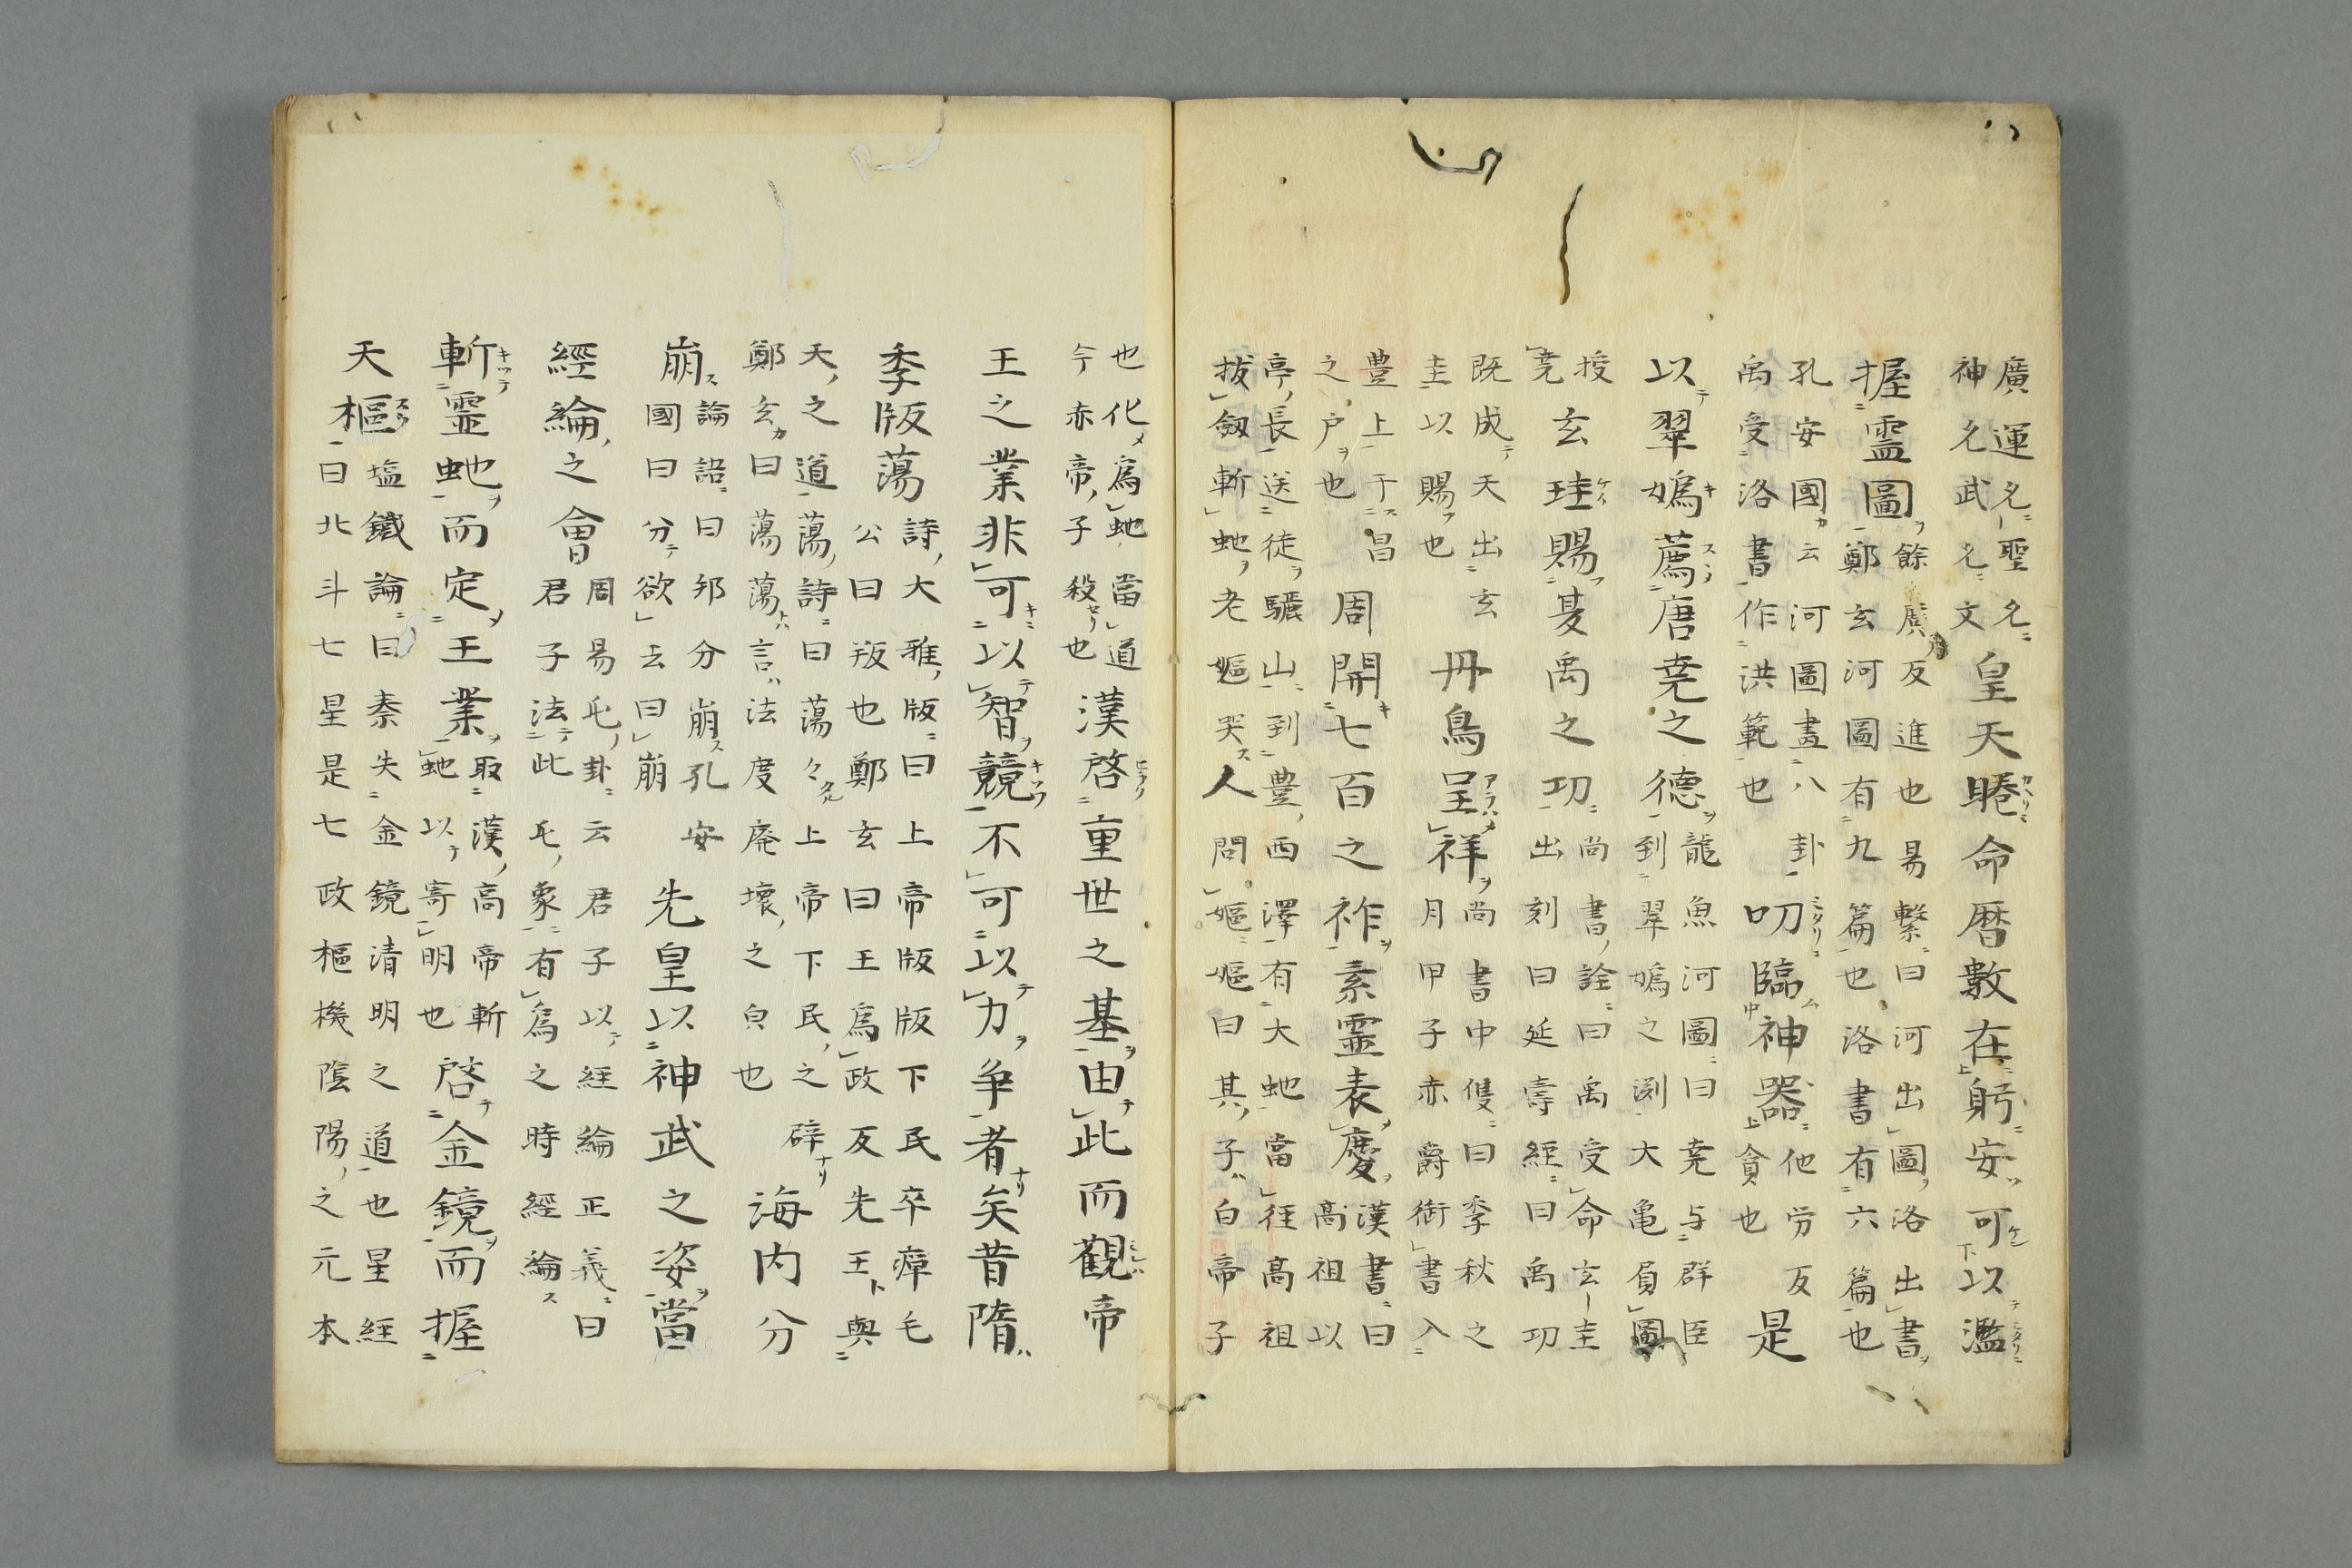 廣運乃聖乃
神乃武乃文
皇天睠命暦數在躬安可以濫
握霊圖
餘廣反進也易繫曰河出圖洛出書
鄭玄河圖有九篇也洛書有六篇也
孔安國云河圖畫八卦
禹受洛書作洪範也
叨臨神器
他労反
貪也
是
以翠嬀薦唐尭之德
龍魚河圖曰尭与群臣
到翠嬀之渕大亀負圖
授
尭
玄珪賜夏禹之功
尚書詮曰禹受命玄圭
出刻曰延壽經曰禹功
既成天出玄
圭以賜也
丹鳥呈祥
尚書中隻曰季秋之
月甲子赤爵銜書入
豊上于昌
之户也
周開七百之祚素霊表慶
漢書曰
高祖以
亭長送徒驪山到豊西澤有大虵當徑高祖
拔劔斬虵老嫗哭人問嫗嫗曰其子白帝子
也化爲虵當道
今赤帝子殺也
漢啓重世之基由此而觀帝
王之業非可以智競不可以力争者矣昔隋
季版蕩
詩大雅版曰上帝版版下民卒瘴毛
公曰版也鄭玄曰王爲政反先王與
天之道蕩詩曰蕩々上帝下民之辟
鄭玄曰蕩蕩言法度廃壞之皃也
海内分
崩
論語曰邦分崩孔安
國曰分欲去曰崩
先皇以神武之姿當
經綸之會
周易屯卦云君子以経綸正義曰
君子法此屯象有爲之時經綸
斬霊虵而定王業
取漢高帝斬
虵以寄明也
啓金鏡而握
天樞
塩鐵論曰秦失金鏡清明之道也星経
曰北斗七星是七政樞機陰陽之元本